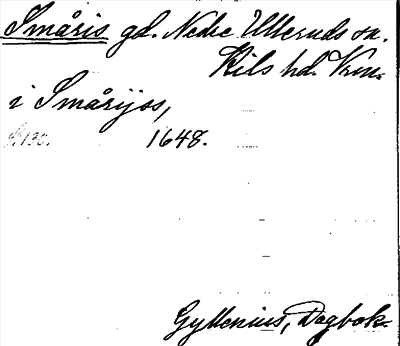 Småris gd. Nedre Ulleruds sn.
Kils hd. Vrm.
i Smårijos,
S. 130. 1648.
Gyllenius, Dagbok.